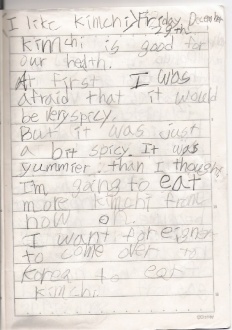 I like kimchi> Friday, December
29th
kimchi is good for
our health.
At first I was
afraid that it would
be very spicy.
But it was just
a bit spicy. It was
yummier than I thought.
I'm going to eat
more kimchi from
now on.
I want foreigner
to come over to
Korea to eat
kimchi